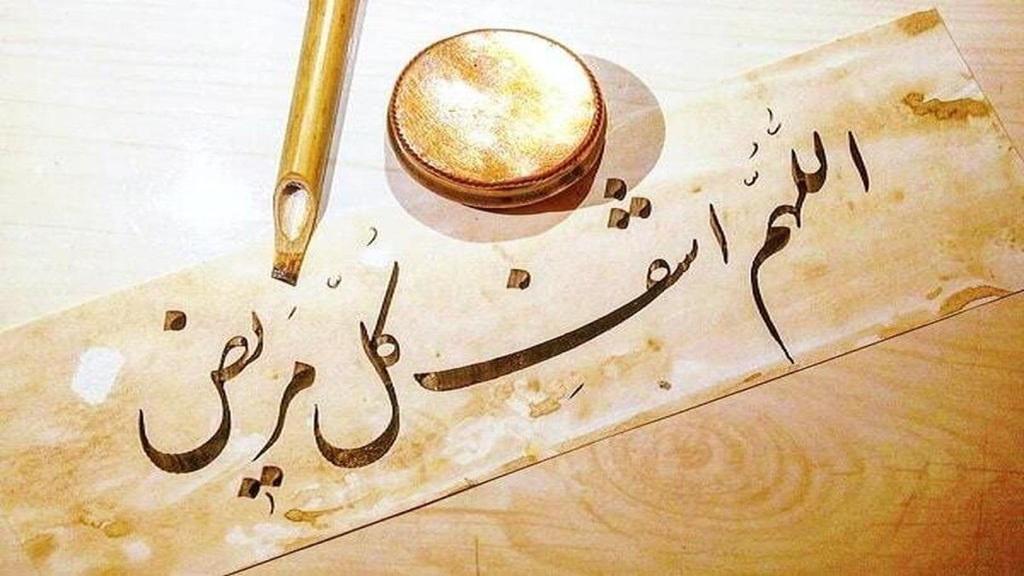 اللّٰهم اشف كلّ مَريض